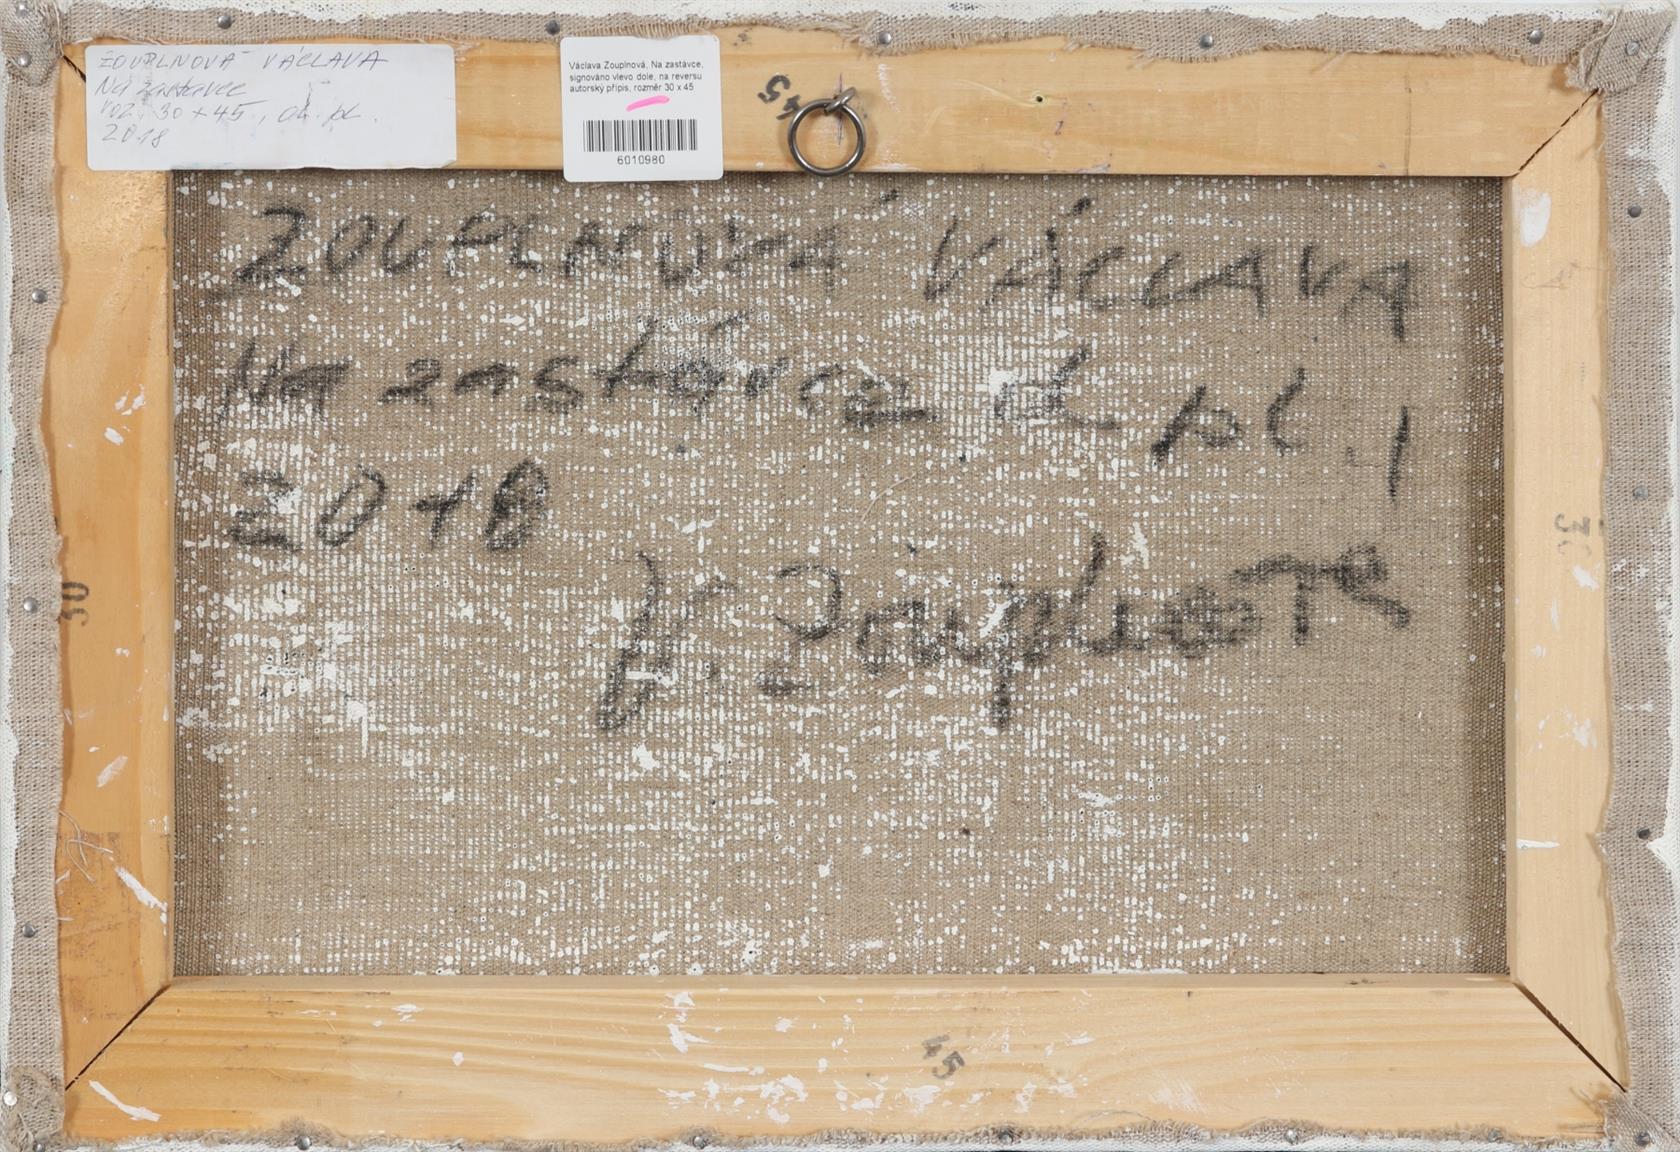 ZOUPLNOVÁ VÁCLAVA
Na zastávce
roz. 30 x 45, ol. pl.
2018
Václava Zouplnová, Na zastávce,
signováno vlevo dole, na reversu
autorský přípis, rozměr 30 x 45
6010980
45
ZOUPLNOVÁ VÁCLAVA
Na zastávce ol. pl.,
2018
V. Zouplnová
30
30
45